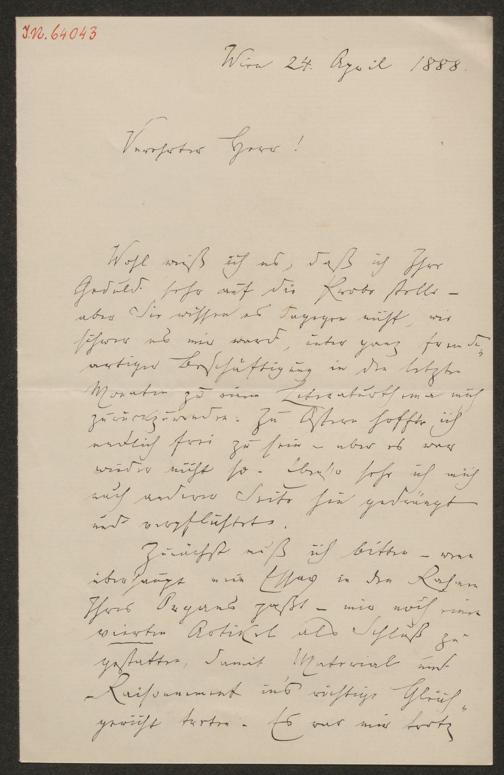 I.N. 64043
Wien 24. April 1888.
Verehrter Herr!
Wohl weiß ich es, daß ich Ihre
Geduld sehr auf die Probe stelle –
aber Sie wissen es dagegen nicht, wie
schwer es mir ward, unter ganz fremd-
artiger Beschäftigung in den letzten
Monaten zu einem Literaturthema mich
zurückzuwenden. Zu Ostern hoffte ich
endlich frei zu sein – aber es war
wieder nicht so. Ebenso sehe ich mich
nach anderer Seite hin gedrängt
und verpflichtet.
Zunächst muß ich bitten – wenn
überhaupt mein Essay in den Rahmen
Ihres Organs paßt – mir noch einen
vierten Artikel als Schluß zu
gestatten, damit Material und
Raisonnement in's richtige Gleich-
gewicht treten. Es war mir trotz